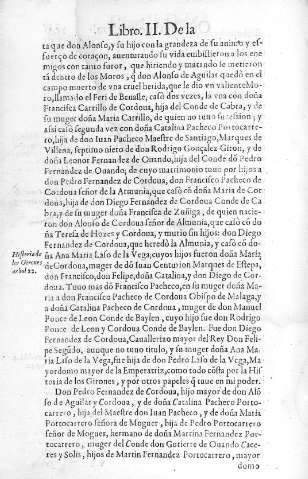 Libro. II. De la
ta que don Alonso, y su hijo con la grandeza de su animo y es-
fuerço de coraçon, auenturando su vida embistieron a los ene
migos con tanto furor, que hiriendo y matando se metieron
tã dentro de los Moros, q̃ don Alonso de Aguilar quedó en el
campo muerto de vna cruel herida, que le dio vn valiente Mo-
ro, llamado el Feri de Benastie, casó dos vezes, la vna con doña
Francisca Carrillo de Cordoua, hija del Conde de Cabra, y de
su muger doña Maria Carrillo, de quien no tuuo sucession, y
assi casó segunda vez con doña Catalina Pacheco Portocarre-
ro, hija de don Iuan Pacheco Maestre de Santiago, Marques de
Villena, septimo nieto de don Rodrigo Gonçalez Giron, y de
doña Leonor Fernandez de Ouando, hija del Conde dõ Pedro
Fernandez de Ouando, de cuyo matrimonio tuuo por hijos a
don Pedro Fernandez de Cordoua, don Francisco Pacheco de
Cordoua señor de la Armunia, que casó cõ doña Maria de Cor
doua, hija de don Diego Fernandez de Cordoua Conde de Ca
bra, y de su muger doña Francisca de Zuñiga, de quien nacie-
ron: don Alonso de Cordoua señor de Almunia, que casó cõ do
ña Teresa de Hozes y Cordoua, y murio sin hijos: don Diego
Fernandez de Cordoua, que heredó la Almunia, y casó cõ do-
ña Ana Maria Laso de la Vega, cuyos hijos fueron doña Maria
de Cordoua, muger de dõ Iuan Centurion Marques de Estepa,
don Francisco, don Felipe, doña Catalina, y don Diego de Cor-
doua. Tuuo mas dõ Francisco Pacheco, en su muger doña Ma-
ria a don Francisco Pacheco de Cordoua Obispo de Malaga, y
a doña Catalina Pacheco de Cordoua, muger de don Manuel
Ponce de Leon Conde de Baylen, cuyo hijo fue don Rodrigo
Ponce de Leon y Cordoua Conde de Baylen. Fue don Diego
Fernandez de Cordoua, Cauallerizo mayor del Rey Don Feli-
pe Segũdo, aunque no tuuo titulo, y su muger doña Ana Ma-
ria Laso de la Vega, fue hija de don Pedro Laso de la Vega, Ma
yordomo mayor de la Emperatriz, como todo cõsta por la His-
toria de los Girones, y por otros papeles q̃ tuue en mi poder.
Don Pedro Fernandez de Cordoua, hijo mayor de don Alõ
so de Aguilar y Cordoua, y de doña Catalina Pacheco Porto-
carrero, hija del Maestre don Iuan Pacheco, y de doña Maria
Portocarrero señora de Moguer, hija de Pedro Portocarrero
señor de Moguer, hermano de doña Martina Fernandez Por-
tocarrero, muger del Conde don Gutierre de Ouando Cace-
res y Solis, hijos de Martin Fernandez Portocarrero, mayor
domo
Historia de
los Girones
arbol 22.